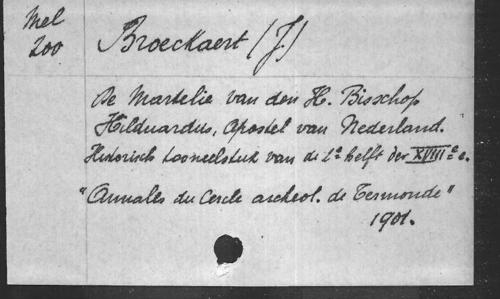 Mel
200
Broeckaert (J.)
De Martelie van den H. Bisschop
Hilduardus, Apostel van Nederland.
Historisch tooneelstuk van de 1e helft der XVIIIe e.
"Annales du Cercle archéol. de Termonde"
1901.